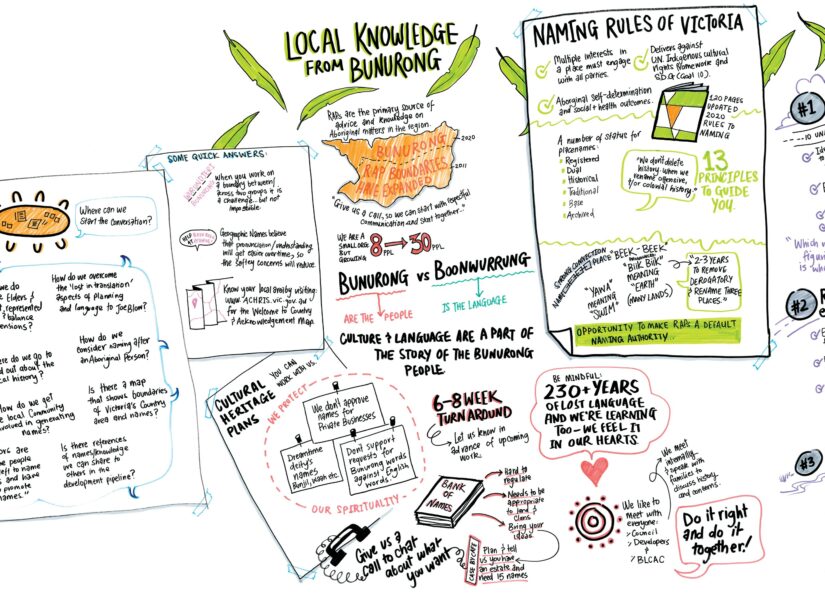 LOCAL KNOWLEDGE
FROM BUNURONG
RAPs are the primary source of
advice and knowledge on
Aboriginal matters in the region.
2020
BUNURONG
2011
RAP BOUNDARIES
HAVE EXPANDED
"Give us a call, so we can start with respectful
communication and start together."
WE ARE A
SMALL ORG
BUT
GROWING
8 PPL
30 PPL
BUNURONG vs BOONWURRUNG
IS THE LANGUAGE
ARE THE PEOPLE
CULTURE & LANGUAGE ARE A PART OF
THE STORY OF THE BUNURONG
PEOPLE.
NAMING RULES OF VICTORIA
Multiple interests in
a place must engage
with all parties.
Delivers against
U.N. Indigenous cultural
rights framework and
S.D.G (Goal 10).
Aboriginal Self-determination
and social & health outcomes.
120 PAGES
UPDATED
2020
RULES TO
NAMING
A number of status for
placenames:
Registered
Dual
Historical
Traditional
Base
Archived
"We don't delete
history when we
rename offensive,
&/or colonial history."
13
PRINCIPLES
TO GUIDE
YOU.
STRONG CONNECTION
PLACE
"YAWA"
MEANING
"SWIM"
"BEEK-BEEK
BIIK BIIK"
MEANING
"EARTH"
(MANY LANDS)
"2-3 YEARS
TO REMOVE
DEROGATORY
& RENAME THREE
PLACES."
OPPORTUNITY TO MAKE RAPs A DEFAULT
NAMING AUTHORITY...
SOME QUICK ANSWERS:
when you work on
a boundary between/
across two groups it is
a challenge... but not
impossible.
Geographic Names believe
that pronunciation/understanding
will get easier overtime, so
the safety concerns will reduce.
Know your local area by visiting:
www.ACHRIS.vic.gov.au
for the Welcome to Country
& Acknowledgement Map.
Where can we
Start the conversation?
How do we overcome
the 'lost in translation'
aspects of planning
and language to Joe Blom?
How do we
consider naming after
an Aboriginal Person?
Is there a map
that shows boundaries
of Victoria's Country
area and names?
Is there references
of names/knowledge
we can share to
others in the
development pipeline?
we do
Elders &
represented
balance
ensions?
ere do we go to
d out about the
cal history?
How do we get
e local Community
volved in generating
names?
ors are
e people
left to name
s and have
promote
names."
CULTURAL
HERITAGE
PLANS
YOU CAN
WORK WITH US
WE PROTECT
We don't approve
names for
Private Businesses
Dreamtime
deity's
names
Bunjil, Waah etc.
Don't support
requests for
Bunurong words
against English
words.
OUR SPIRITUALITY
6-8 WEEK
TURNAROUND
Let us know in
advance of upcoming
work.
BANK
OF
NAMES
Hard to
regulate
Needs to be
appropriate
to land &
Clans
Bring your
ideas
CASE BY CASE
Plan & tell
us you have
an estate and
need 15 names
Give us a
call to chat
about what
you want
BE MINDFUL:
230+ YEARS
OF LOST LANGUAGE
AND WE'RE LEARNING
TOO - WE FEEL IT
IN OUR HEARTS.
We meet
internally
& speak with
families to
discuss history
and concerns.
We like to
meet with
everyone:
Council
Developers
&
BLCAC
Do it right
and do it
together!
#1
#2
#3